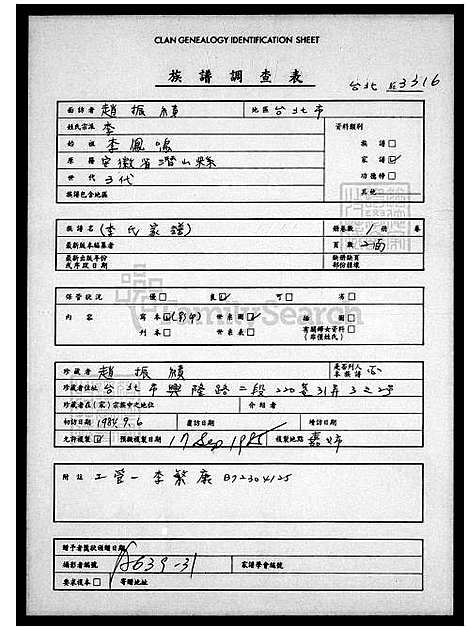 CLAN GENEALOGY IDENTIFICATION SHEET
族譜調查表
台北 3316
面訪者 趙振績 地區 台北市
姓氏宗派 李 資料類別
始祖 李鳳鳴 族譜□
原籍 安徽省潛山縣 家譜☑
世代 3代 功德榜□
族譜包含地區 其他
族譜名 (李氏家譜) 册卷數 1 册 卷
最新版本編纂者 頁數
最新出版年份或序跋日期 缺册缺頁部份種壞
保管狀況 優□ 良☑ 可□ 劣□
內容 寫本☑(影印) 世系圖☑ 插圖□
刊本□ 世系表□ 有關婦女資料□(非僅姓氏)
FamilySearch
珍藏者 趙振績 是否列入本族譜 否
珍藏者住址 台北市興隆路二段220巷31弄3之2號
珍藏者在(家)宗族中之地位 介紹者
初訪日期 1984.9.6 覆訪日期 增訪日期
允許複製☑ 預擬複製日期 17 Sep 1985 複製地點
附註 工營一李繁康 B72304125
贈予者獎狀頒贈日期
攝影者編號 A639-31 家譜學會編號
要求複本□ 寄贈地址